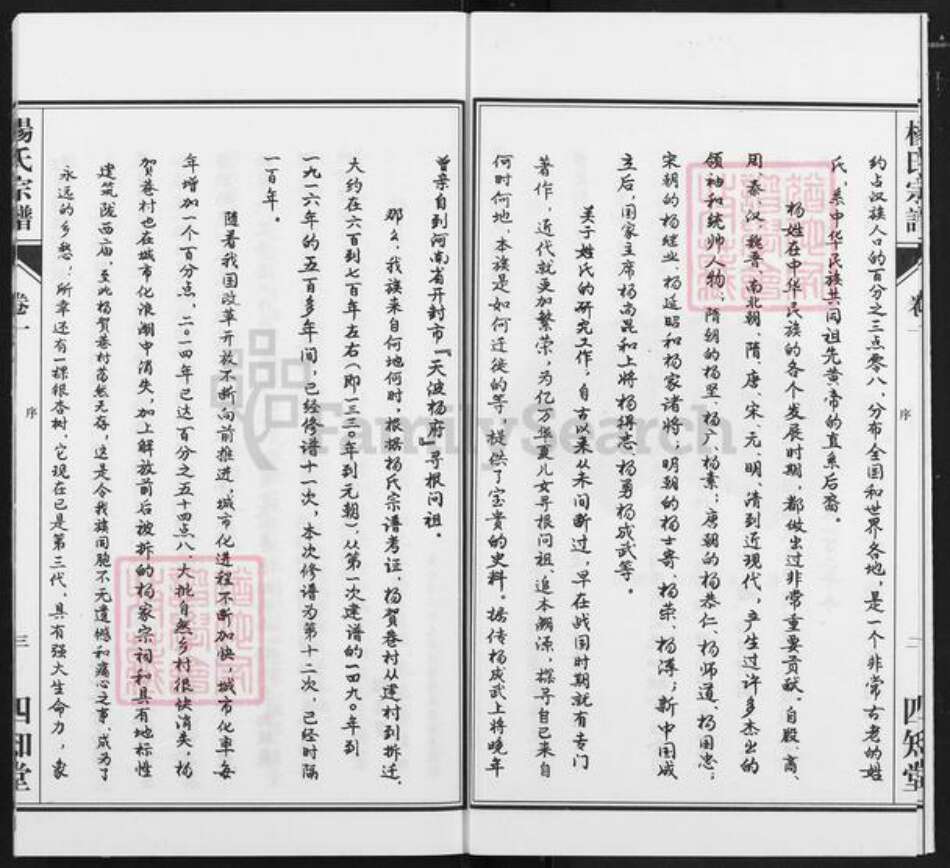 楊氏宗譜 卷一 序 二 四知堂
约占汉族人口的百分之三点零八，分布全国和世界各地，是一个非常古老的姓
氏，系中华民族共同祖先黄帝的直系后裔。
杨姓在中华民族的各个发展时期，都做出过非常重要贡献。自殷、商、
周、秦、汉、魏晋、南北朝、隋、唐、宋、元、明、清到近现代，产生过许多杰出的
领袖和统帅人物，隋朝的杨坚、杨广、杨素；唐朝的杨恭仁、杨师道、杨国忠；
宋朝的杨继业、杨延昭和杨家诸将；明朝的杨士奇、杨荣、杨溥；新中国成
立后，国家主席杨尚昆和上将杨得志、杨勇、杨成武等。
关于姓氏的研究工作，自古以来从未间断过，早在战国时期就有专门
著作，近代就更加繁荣，为亿万华夏儿女寻根问祖、追本溯源，探寻自己来自
何时何地，本族是如何迁徙的等，提供了宝贵的史料。据传杨成武上将晚年
曾亲自到河南省开封市『天波杨府』寻根问祖。
那么，我族来自何地何时，根据杨氏宗谱考证，杨贺巷村从建村到拆迁，
大约在六百到七百年左右（即一三一〇年到元朝），从第一次建谱的一四九〇年到
一九一六年的五百多年间，已经修谱十一次，本次修谱为第十二次，已经时隔
一百年。
随着我国改革开放不断向前推进，城市化进程不断加快，城市化率每
年增加一个百分点，二〇一四年已达百分之五十四点八，大批自然乡村很快消失，杨
贺巷村也在城市化浪潮中消失，加上解放前后被拆的杨家宗祠和具有地标性
建筑陇西庙，至此杨贺巷村荡然无存，这是令我族同胞不无遗憾和痛心之事，成为了
永远的乡愁；所幸还有一棵银杏树，它现在已是第三代，具有强大生命力，象
楊氏宗譜 卷一 序 三 四知堂
FamilySearch